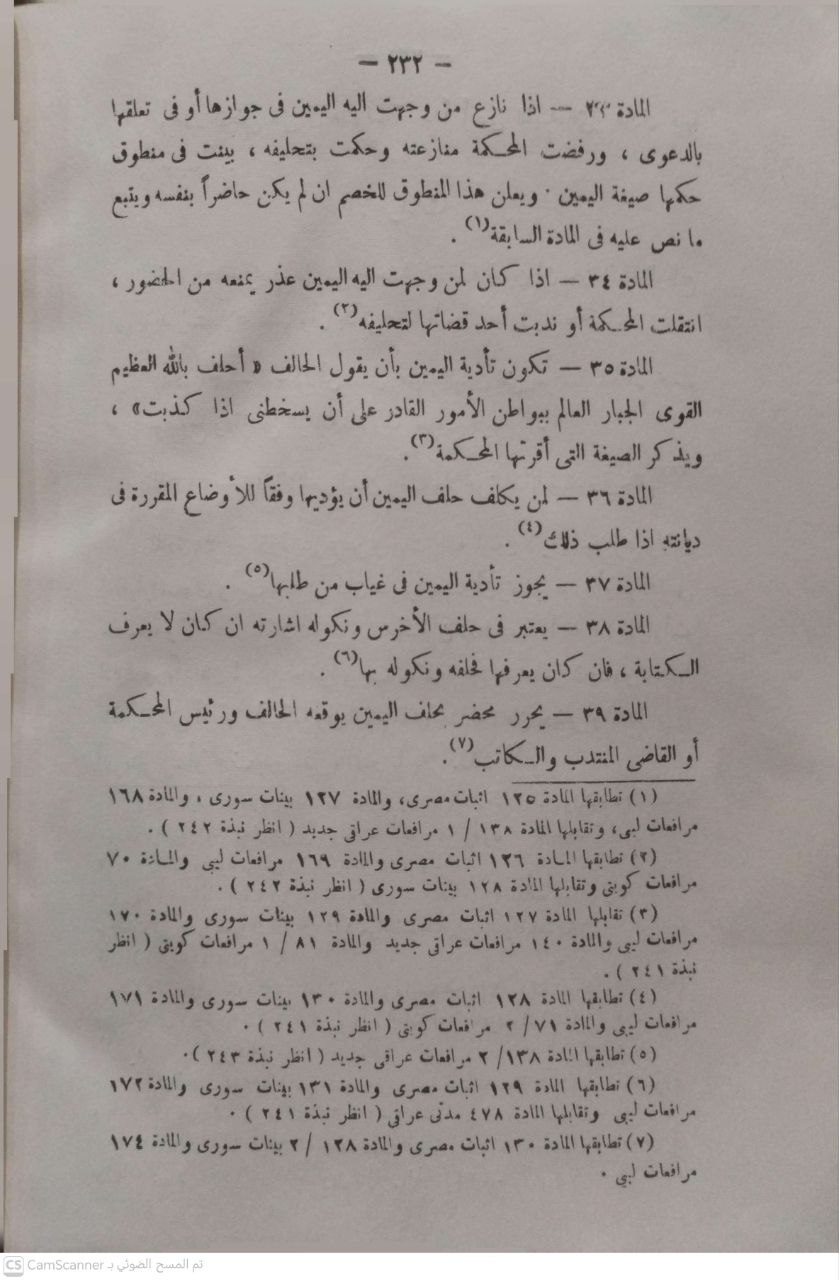 — ٢٣٢ —
المادة — اذا نازع من وجهت اليه اليمين فى جوازها أو فى تعلقها
بالدعوى ، ورفضت المحكمة منازعته وحكمت بتحليفه ، بينت فى منطوق
حكمها صيغة اليمين · ويعلن هذا المنطوق للخصم ان لم يكن حاضراً بنفسه ويتبع
ما نص عليه فى المادة السابقة(١) .
المادة ٣٤ — اذا كان لمن وجهت اليه اليمين عذر يمنعه من الحضور ،
انتقلت المحكمة أو ندبت أحد قضاتها لتحليفه(٢) .
المادة ٣٥ — تكون تأدية اليمين بأن يقول الحالف « أحلف بالله العظيم
القوى الجبار العالم ببواطن الأمور القادر على أن يسخطنى اذا كذبت» ،
ويذكر الصيغة التى أقرتها المحكمة(٣).
المادة ٣٦ — لمن يكلف حلف اليمين أن يؤديها وفقاً للأوضاع المقررة فى
ديانته اذا طلب ذلك(٤) .
المادة ٣٧ — يجوز تأدية اليمين فى غياب من طلبها(٥) .
المادة ٣٨ — يعتبر فى حلف الأخرس ونكوله اشارته ان كان لا يعرف
الكتابة ، فان كان يعرفها فحلفه ونكوله بها(٦) .
المادة ٣٩ — يحرر محضر بحلف اليمين يوقعه الحالف ورئيس المحكمة
أو القاضى المنتدب والكاتب(٧).
(١) تطابقها المادة ١٢٥ اثبات مصرى، والمادة ١٢٧ بينات سورى ، والمادة ١٦٨
مرافعات ليبى، وتقابلها المادة ١٣٨ / ١ مرافعات عراقى جديد ( انظر نبذة ٢٤٢ ) .
(٢) تطابقها المادة ١٢٦ اثبات مصرى والمادة ١٦٩ مرافعات ليبى والمادة ٧٠
مرافعات كويتى وتقابلها المادة ١٢٨ بينات سورى ( انظر نبذة ٢٤٢ ) .
(٣) تقابلها المادة ١٢٧ اثبات مصرى والمادة ١٢٩ بينات سورى والمادة ١٧٠
مرافعات ليبى والمادة ١٤٠ مرافعات عراقى جديد والمادة ٨١ / ١ مرافعات كويتى ( انظر
نبذة ٢٤١ ) .
(٤) تطابقها المادة ١٢٨ اثبات مصرى والمادة ١٣٠ بينات سورى والمادة ١٧١
مرافعات ليبى والمادة ٧١/ ٢ مرافعات كويتى ( انظر نبذة ٢٤١ ) ·
(٥) تطابقها المادة ١٣٨/ ٢ مرافعات عراقى جديد ( انظر نبذة ٢٤٣ ) ·
(٦) تطابقها المادة ١٢٩ اثبات مصرى والمادة ١٣١ بينات سورى والمادة ١٧٢
مرافعات ليبى وتقابلها المادة ٤٧٨ مدنى عراقى ( انظر نبذة ٢٤١ ) ·
(٧) تطابقها المادة ١٣٠ اثبات مصرى والمادة ١٢٨ / ٢ بينات سورى والمادة ١٧٤
مرافعات ليبى ·
CS CamScanner تم المسح الضوئي بـ